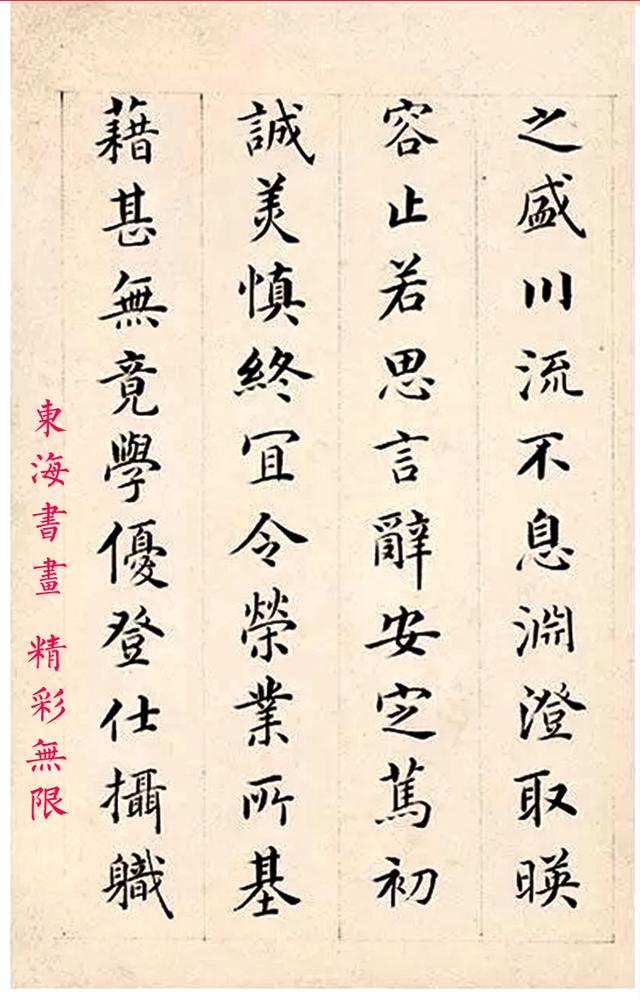 之盛川流不息淵澄取暎
容止若思言辭安定篤初
誠美慎終宜令榮業所基
藉甚無竟學優登仕攝職
東海書畫 精彩無限